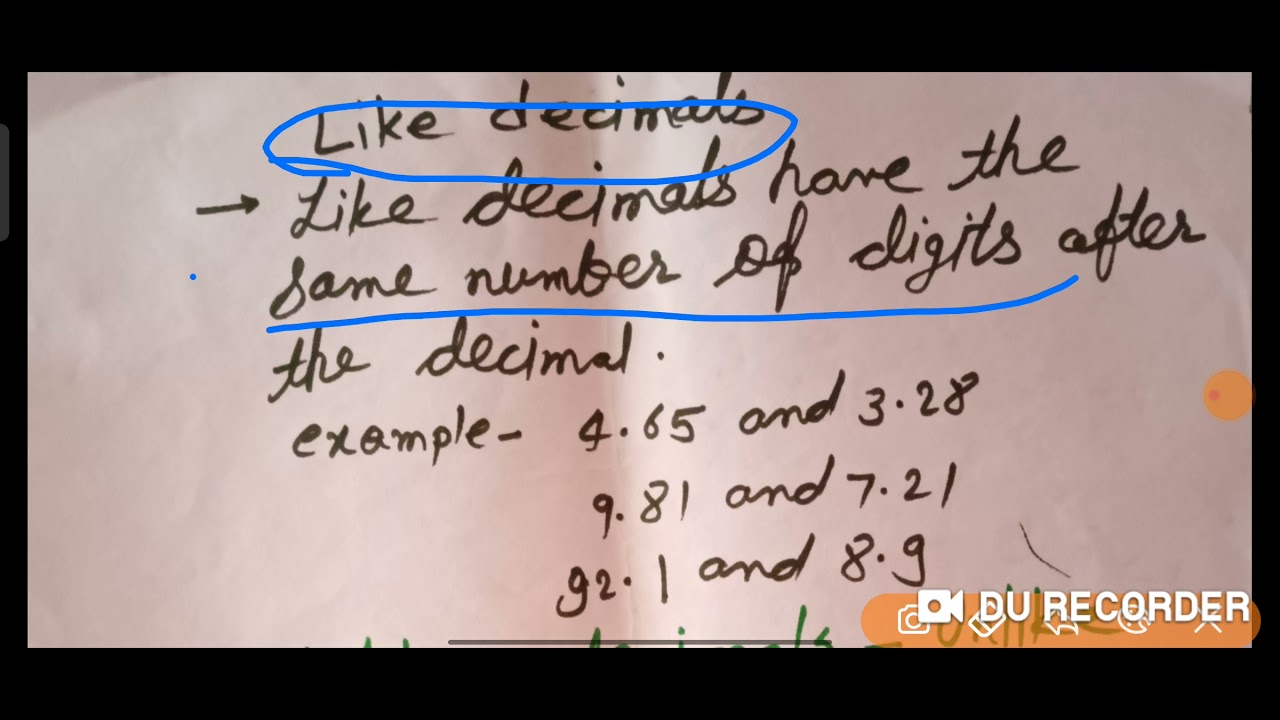 Like decimals
→ Like decimals have the
same number of digits after
the decimal.
example- 4.65 and 3.28
9.81 and 7.21
92.1 and 8.9
DU RECORDER
decimals - unlike